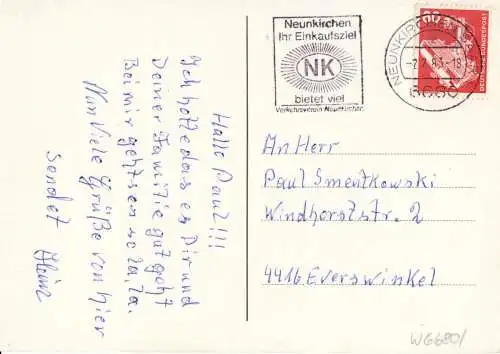 Neunkirchen
Ihr Einkaufsziel
NK
bietet viel
Verkehrsverein Neunkirchen
NEUNKIRCHEN
-7.7.83-18
6680
80
DEUTSCHE BUNDESPOST
Hallo Paul!!!
Ich hoffe das es Dir und
Deiner Familie gut geht
Bei mir geht es so la, la.
Nun Viele Grüße von hier
sendet Heinz
An Herr
Paul Smentkowski
Windhorststr. 2
4416 Everswinkel
WG680/